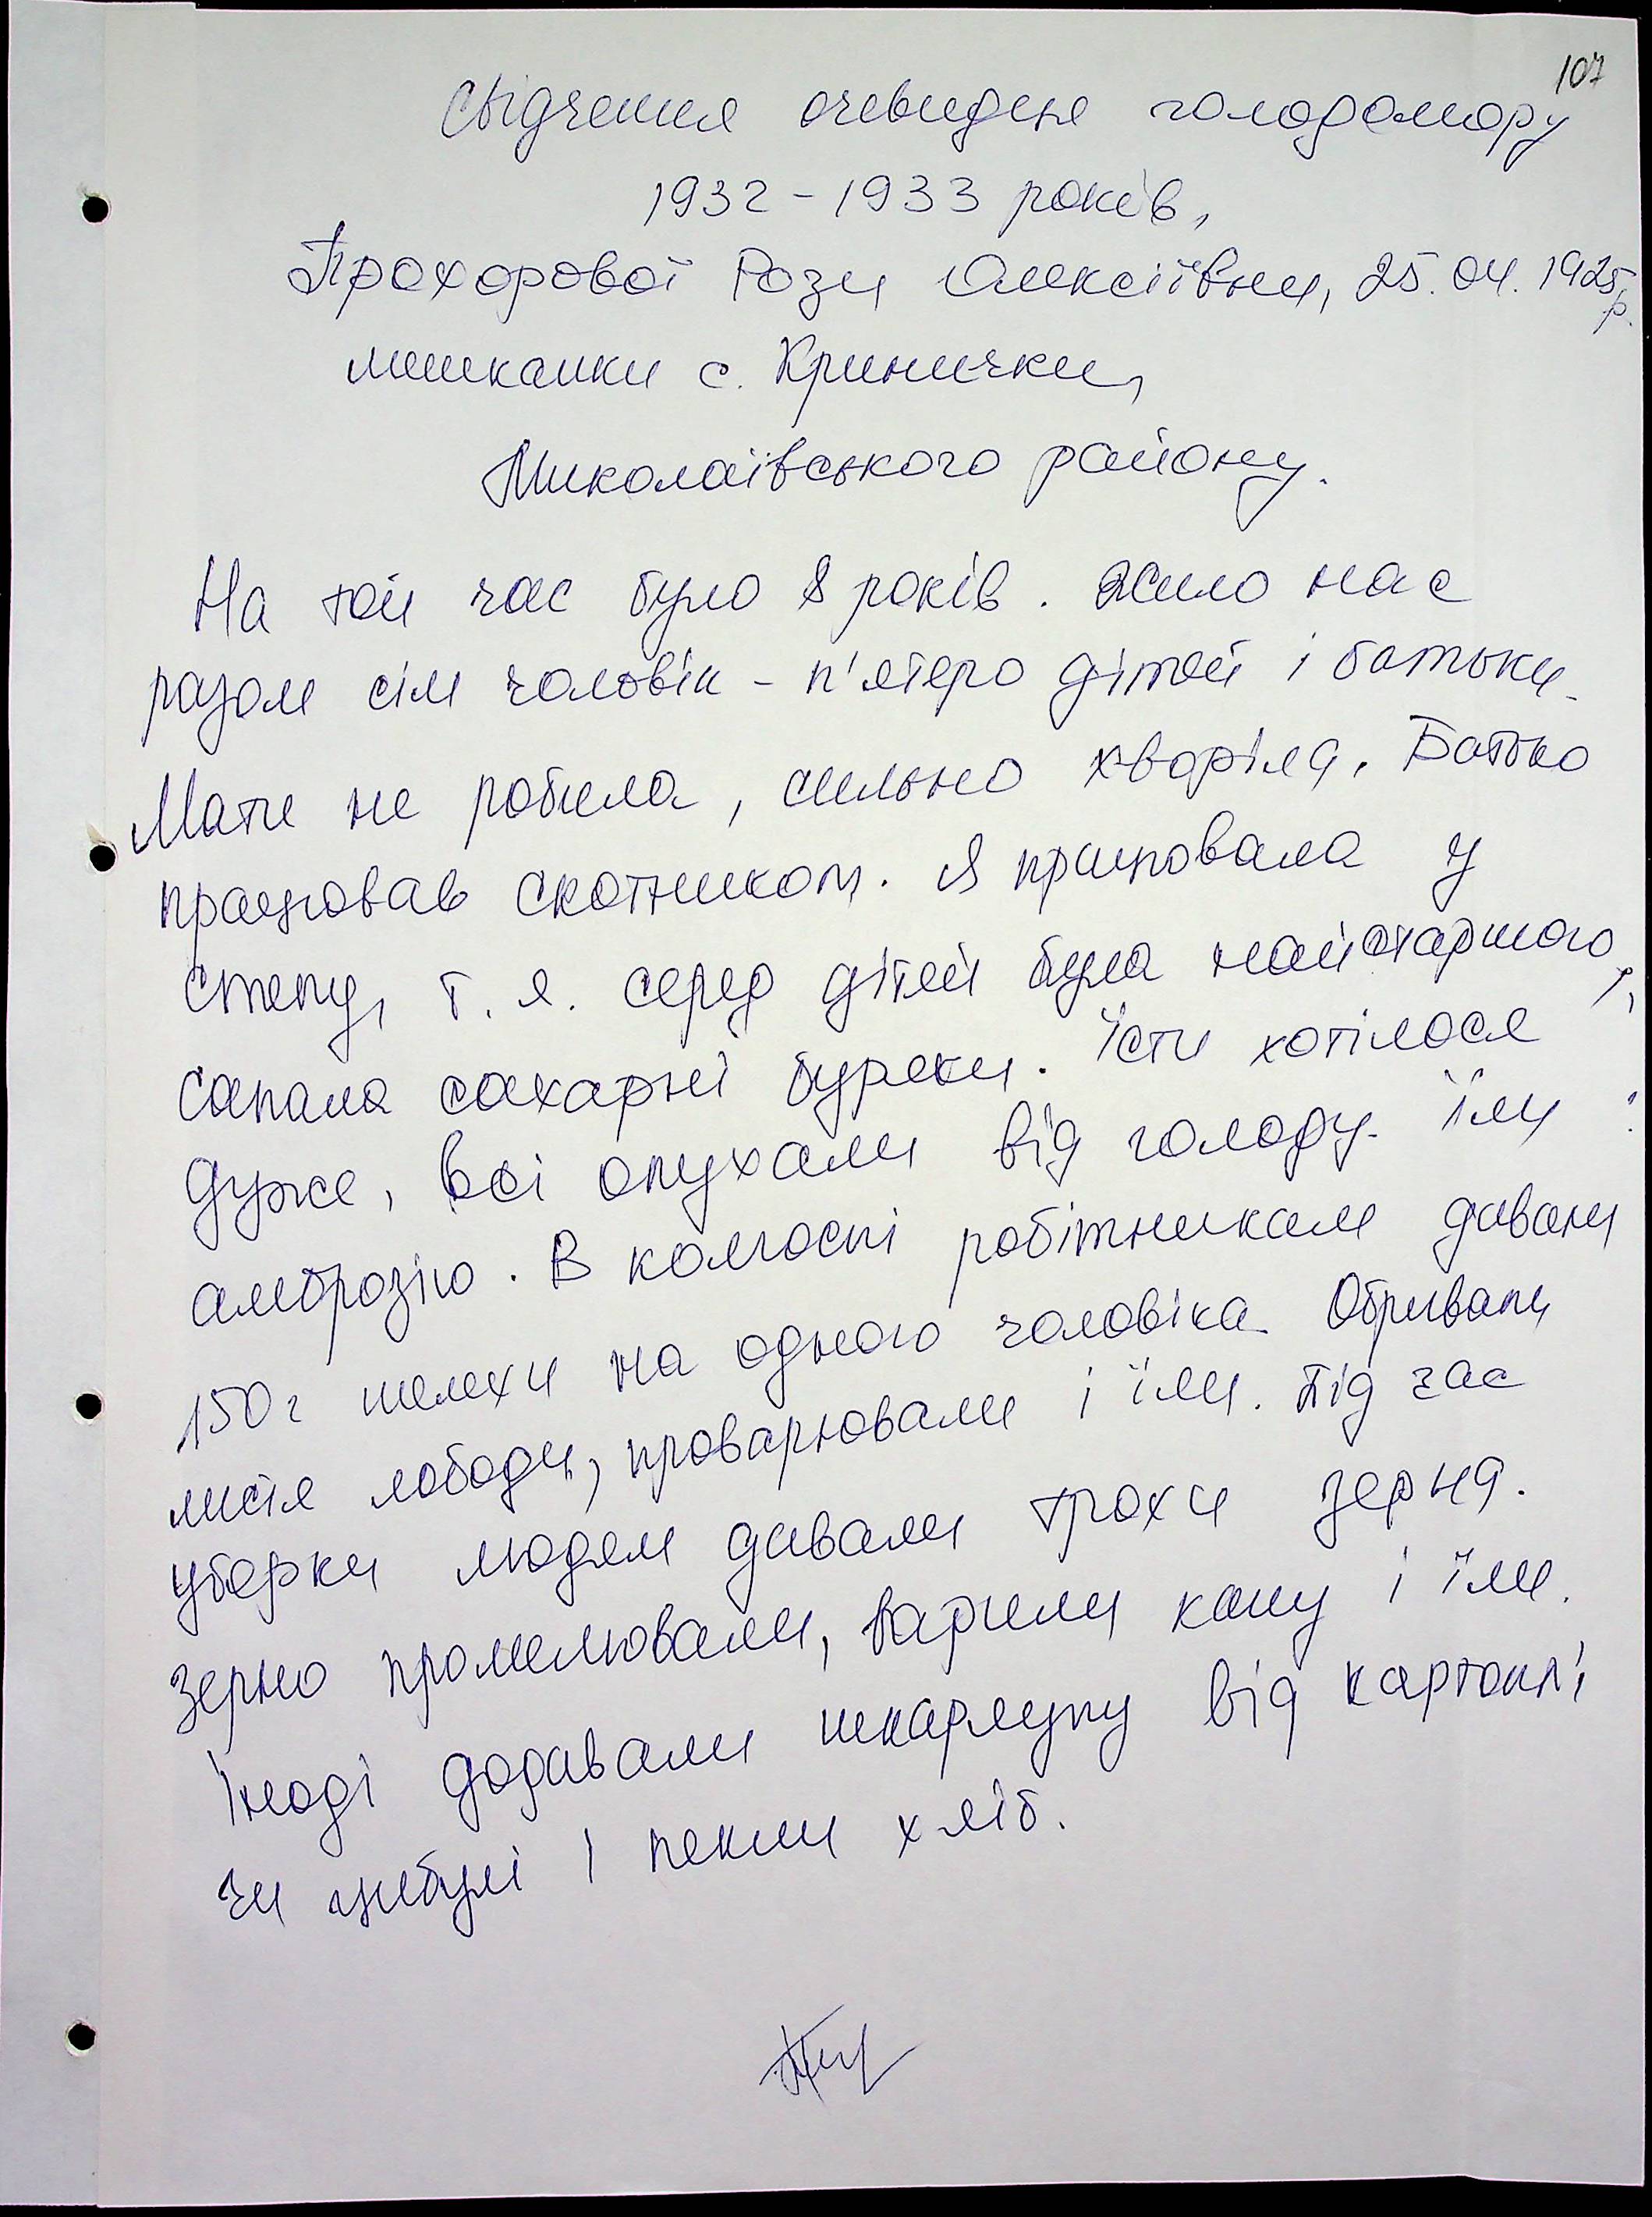 107
Свідчення очевидця голодомору
1932-1933 років,
Прохорової Рози Олексіївни, 25.04.1925р.
мешканки с. Кринички,
Миколаївського району.
На той час було 8 років. Жило нас
разом сім чоловік - п'ятеро дітей і батьки.
Мати не робила, сильно хворіла. Батько
працював скотником. Я працювала у
степу, т.я. серед дітей була найстаршою,
сапала сахарні буряки. Їсти хотілося
дуже, всі опухали від голоду. Їли :
амброзію. В колгоспі робітникам давали
150г шелехи на одного чоловіка. Обривали
листя лободи, проварювали і їли. Під час
уборки людям давали трохи зерна.
Зерно промелювали, варили кашу і їли.
Іноді додавали шкарлупу від картоплі
чи цибулі і пекли хліб.